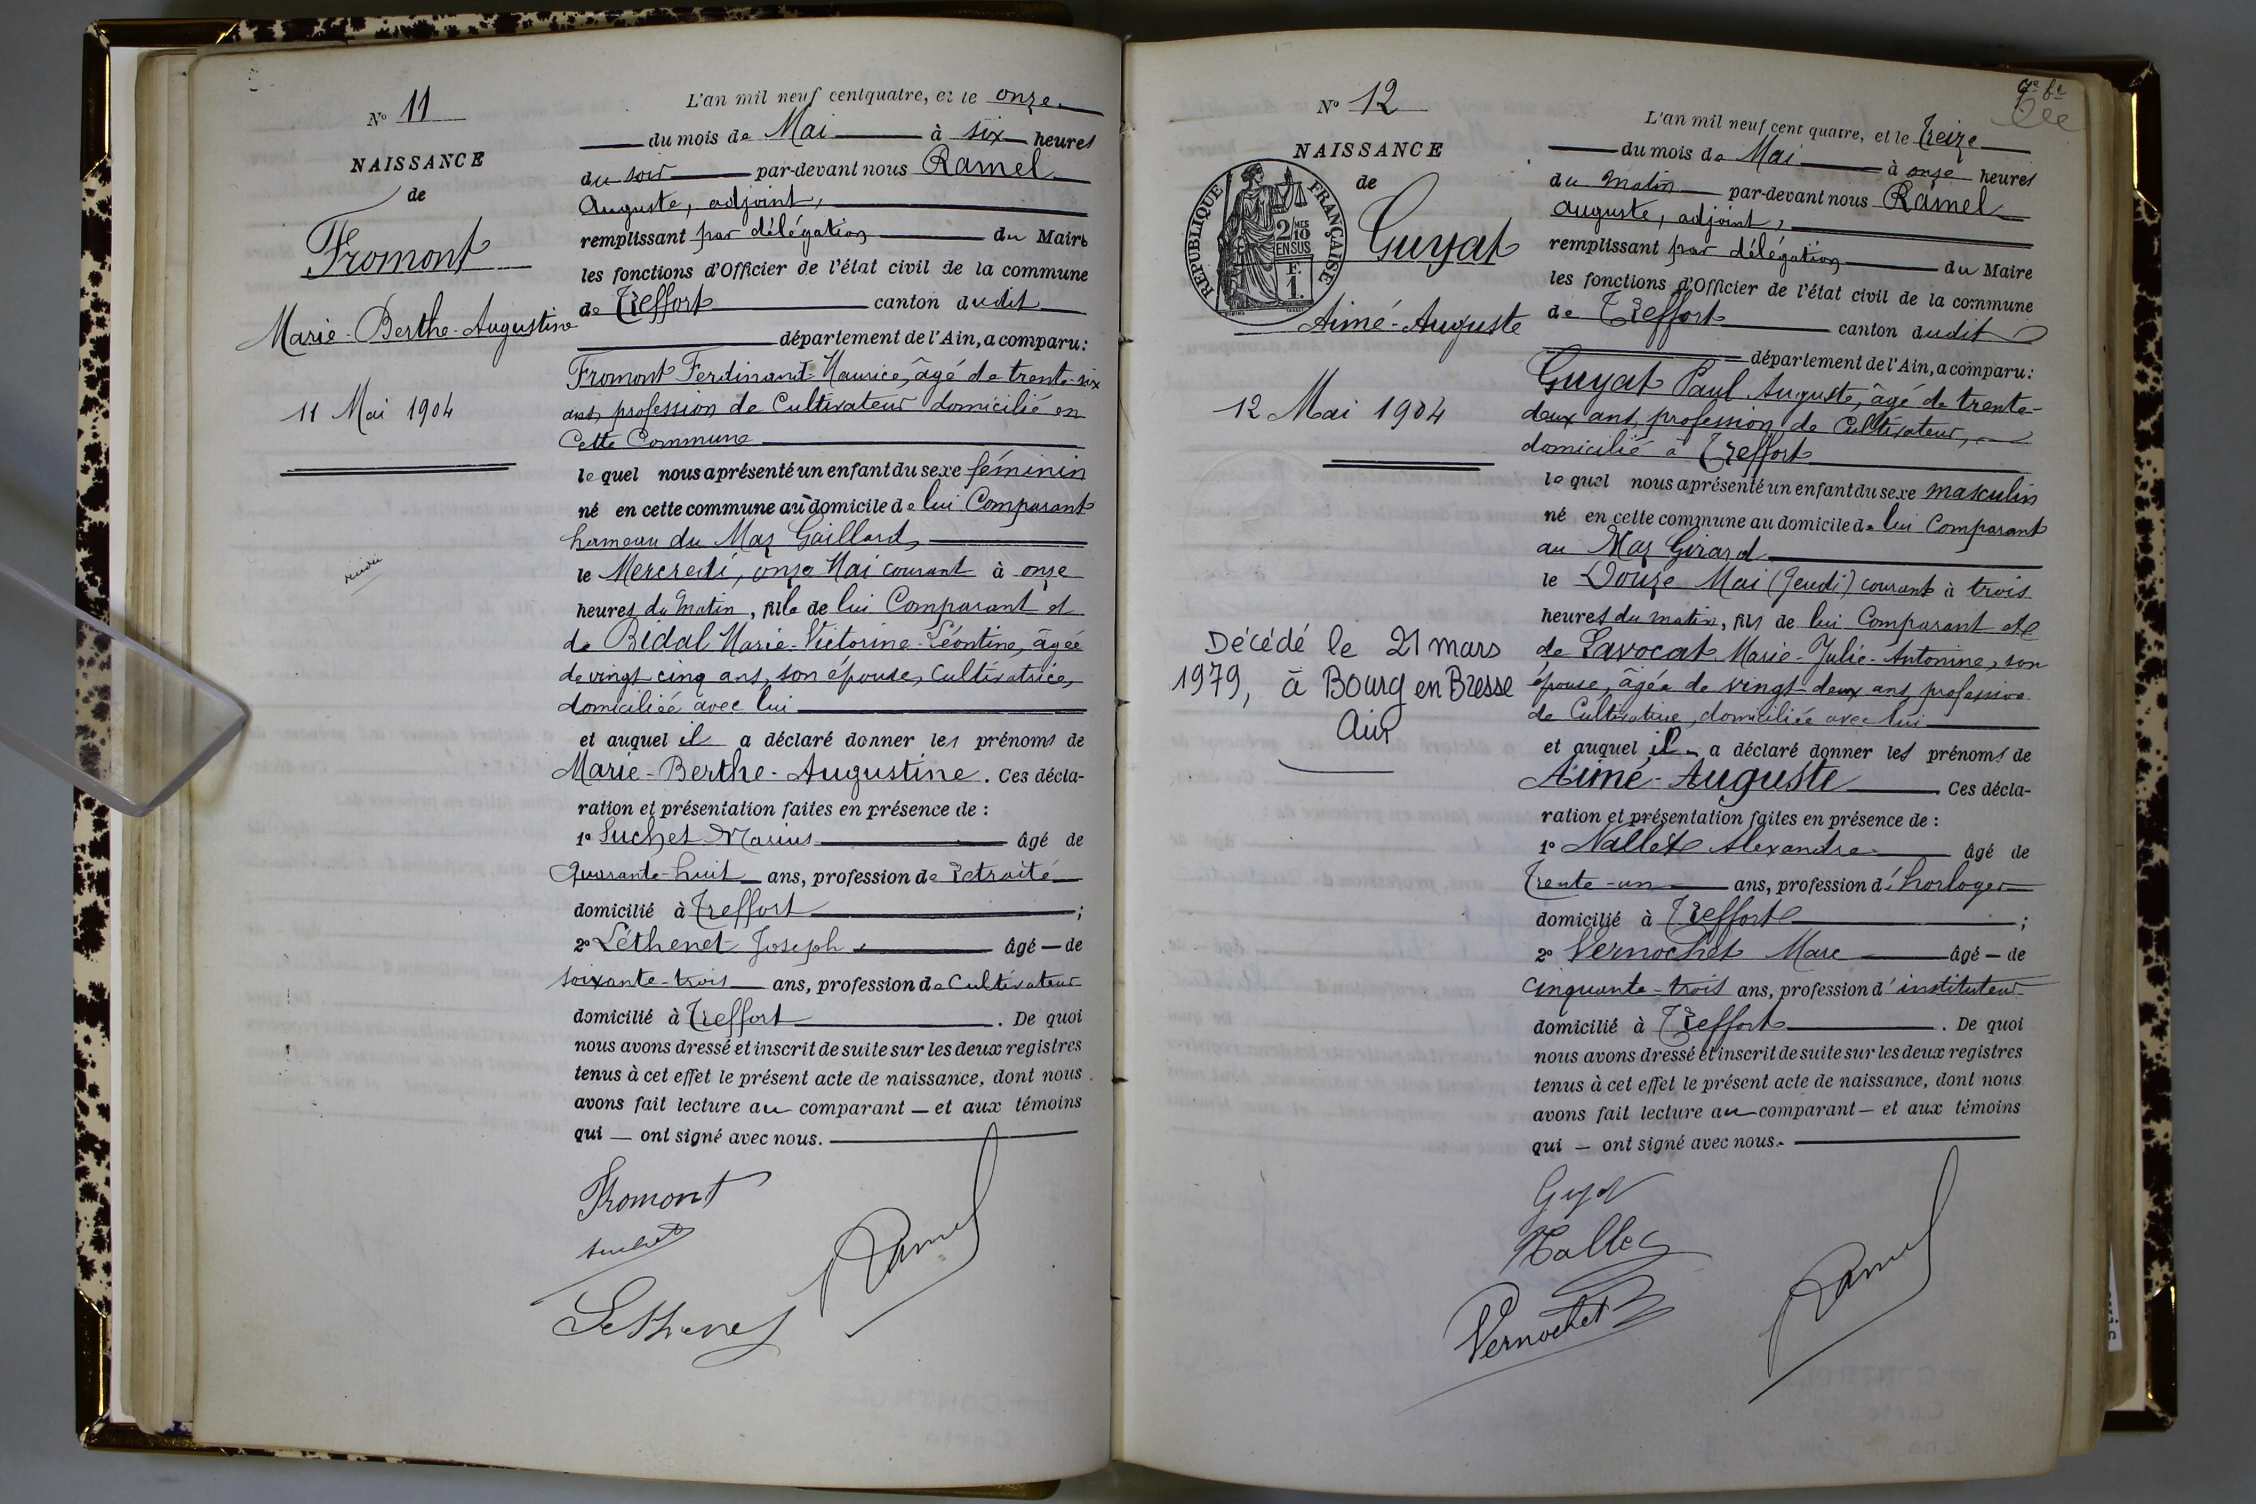 N° 11
NAISSANCE
de
Fromont
Marie-Berthe-Augustine
11 Mai 1904
L'an mil neuf cent quatre, et le onze
du mois de Mai à six heures
du soir par-devant nous Ramel
Auguste, adjoint,
remplissant par délégation du Maire
les fonctions d'Officier de l'état civil de la commune
de Treffort canton dudit
département de l'Ain, a comparu:
Fromont Ferdinand-Maurice, âgé de trente-six
ans, profession de Cultivateur domicilié en
Cette Commune
lequel nous a présenté un enfant du sexe féminin
né en cette commune au domicile de lui Comparant
hameau du Maz Gaillard,
le Mercredi, onze Mai courant à onze
heures du matin, fille de lui Comparant et
de Bidal Marie-Victorine-Léontine, âgée
de vingt cinq ans, son épouse, Cultivatrice,
domiciliée avec lui
et auquel il a déclaré donner les prénoms de
Marie-Berthe-Augustine. Ces décla-
ration et présentation faites en présence de :
1° Suchet Marius âgé de
Quarante-huit ans, profession de retraité
domicilié à Treffort ;
2° Léthenet Joseph âgé — de
soixante-trois ans, profession de Cultivateur
domicilié à Treffort . De quoi
nous avons dressé et inscrit de suite sur les deux registres
tenus à cet effet le présent acte de naissance, dont nous
avons fait lecture au comparant — et aux témoins
qui — ont signé avec nous.
Fromont
Suchet
Ramel
Lethenet
N° 12
NAISSANCE
de
RÉPUBLIQUE FRANÇAISE
2/10 MES
EN SUS
F.
1.
Guyat
Aimé-Auguste
12 Mai 1904
Décédé le 21 mars
1979, à Bourg en Bresse
Ain
L'an mil neuf cent quatre, et le Treize
du mois de Mai à onze heures
du matin par-devant nous Ramel
Auguste, adjoint,
remplissant par délégation du Maire
les fonctions d'Officier de l'état civil de la commune
de Treffort canton dudit
département de l'Ain, a comparu:
Guyat Paul Auguste, âgé de trente-
deux ans, profession de Cultivateur,
domicilié à Treffort
lequel nous a présenté un enfant du sexe masculin
né en cette commune au domicile de lui Comparant
au Maz Girard
le Douze Mai (Jeudi) courant à trois
heures du matin, fils de lui Comparant et
de Lavocat Marie-Julie-Antonine, son
épouse, âgée de vingt-deux ans, profession
de Cultivatrice, domiciliée avec lui
et auquel il a déclaré donner les prénoms de
Aimé-Auguste Ces décla-
ration et présentation faites en présence de :
1° Nallet Alexandre âgé de
Trente-un ans, profession d'horloger
domicilié à Treffort ;
2° Vernochet Marc âgé — de
Cinquante-trois ans, profession d'instituteur
domicilié à Treffort . De quoi
nous avons dressé et inscrit de suite sur les deux registres
tenus à cet effet le présent acte de naissance, dont nous
avons fait lecture au comparant — et aux témoins
qui — ont signé avec nous.
Guyat
Nallet
Vernochet
Ramel